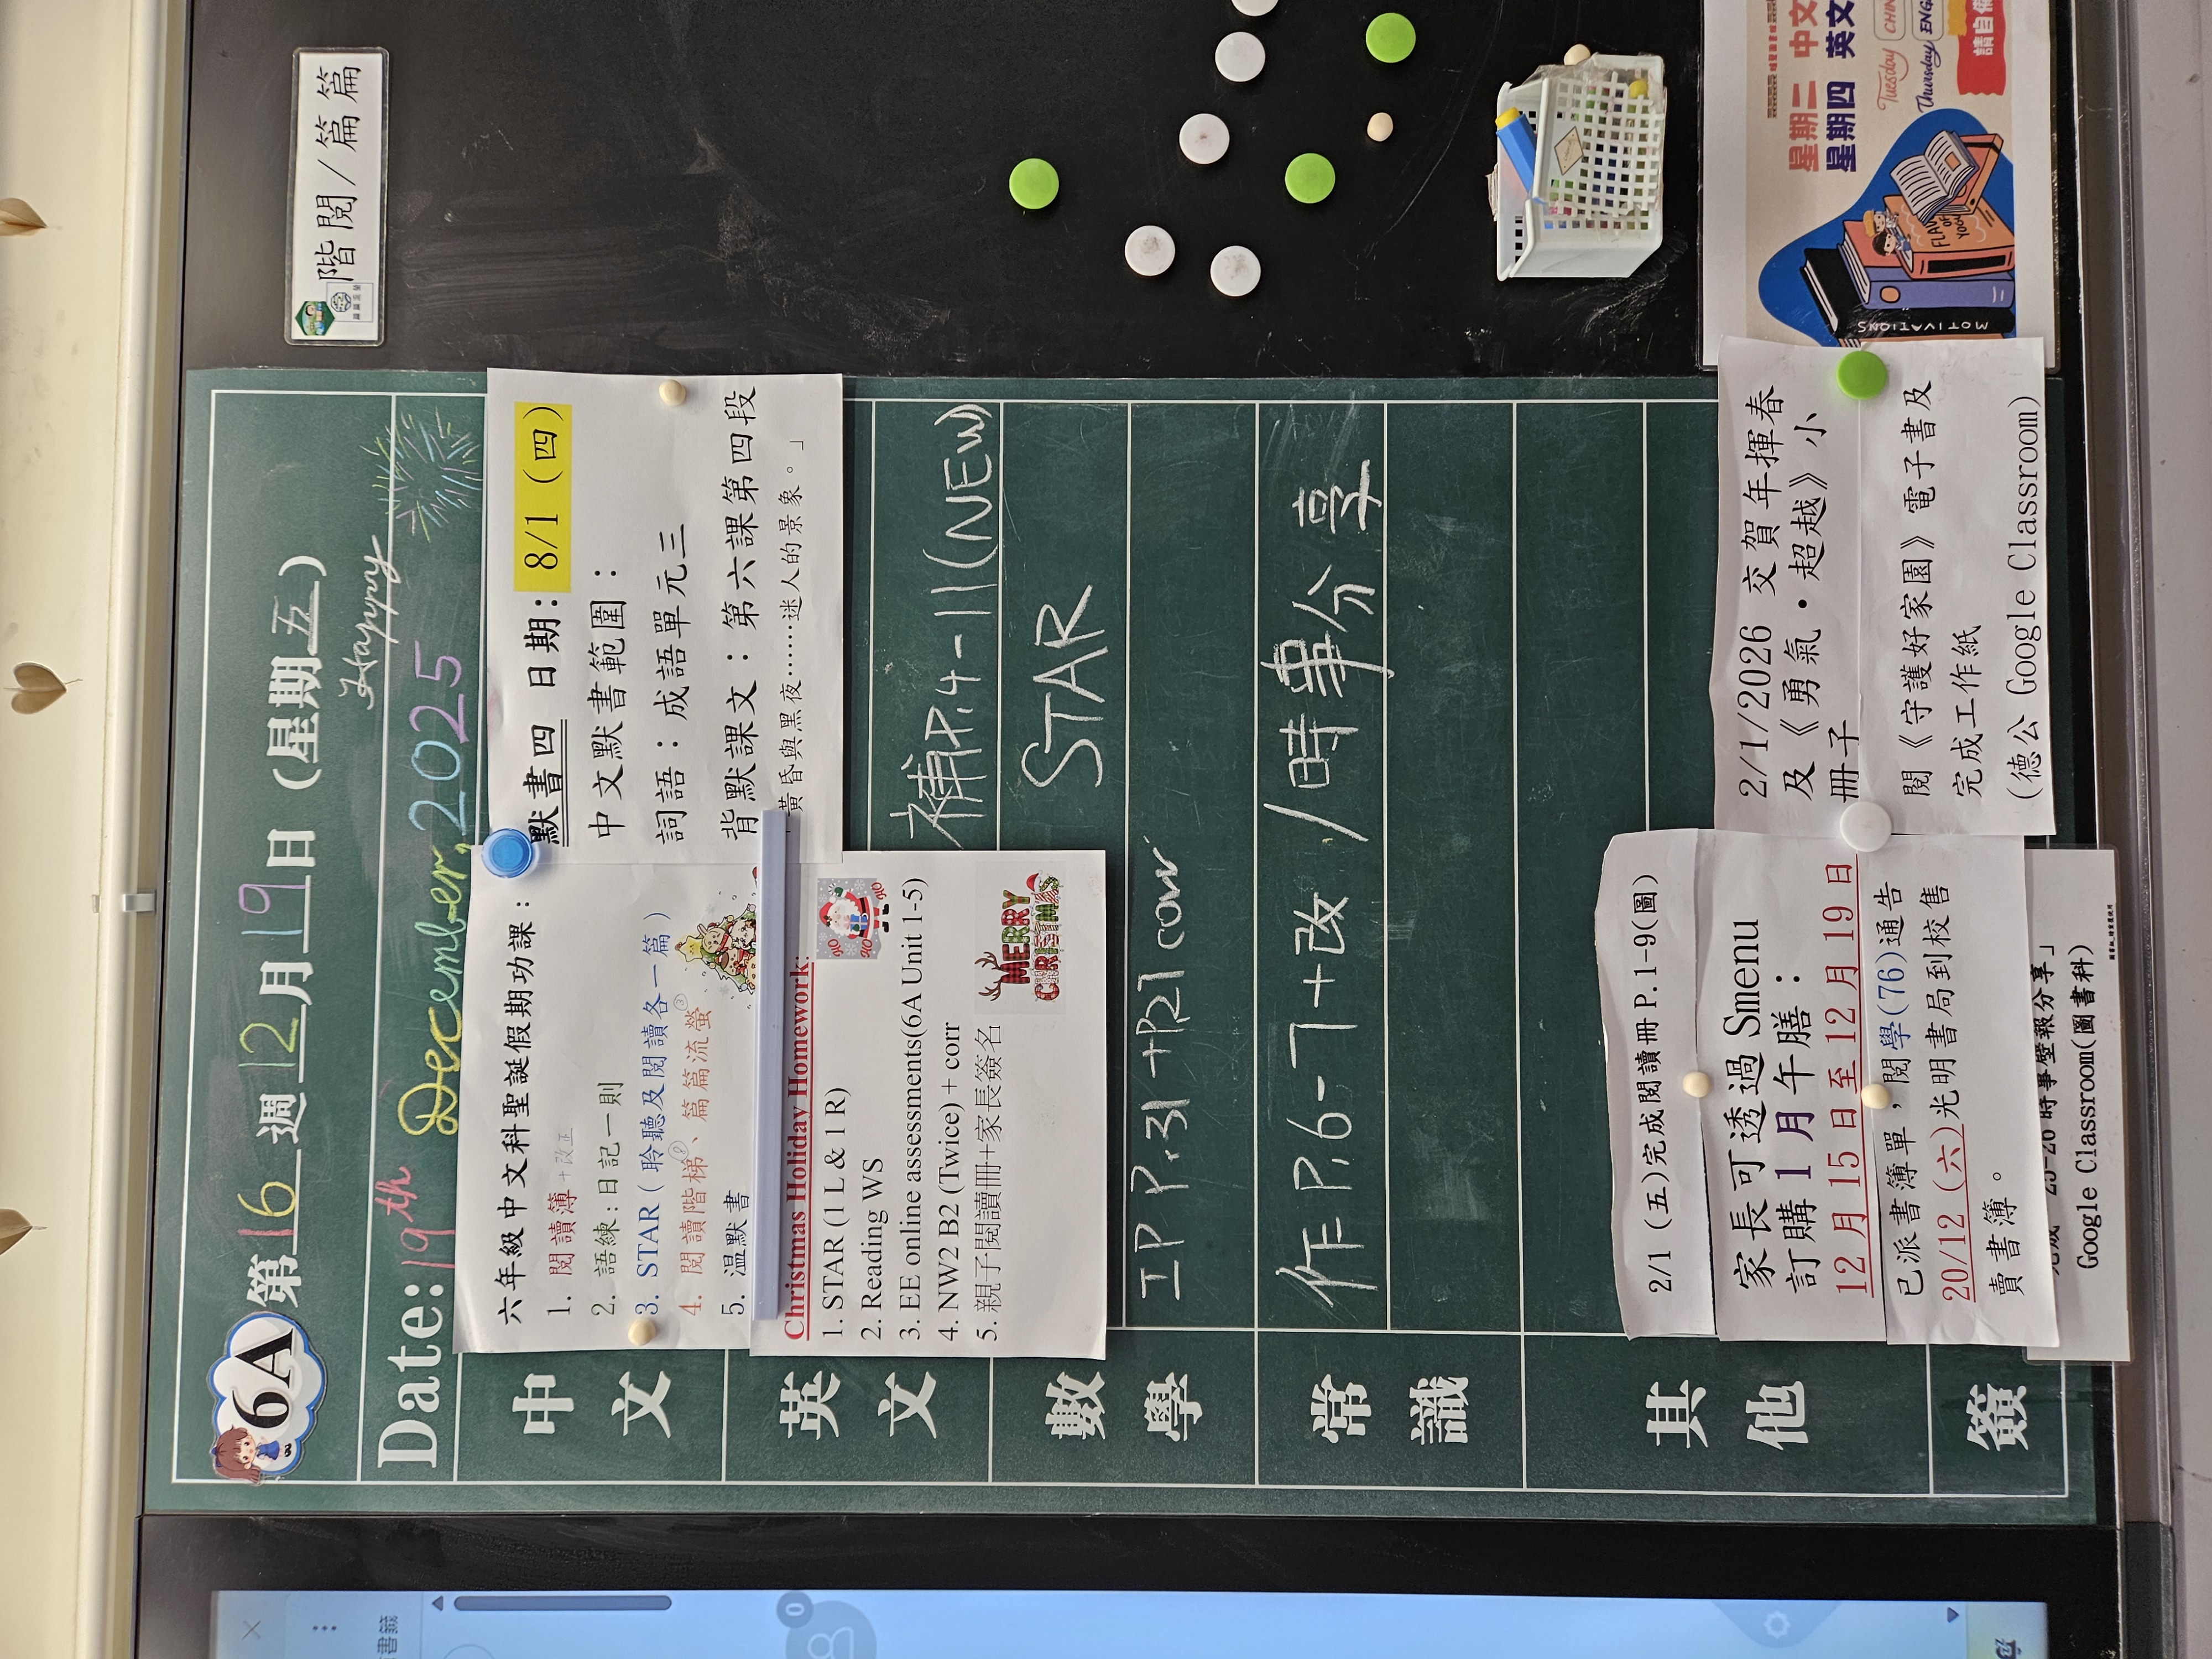 6A 第16週12月19日 (星期五)
Date: 19th December, 2025
Happy
中文
六年級中文科聖誕假期功課：
1. 閱讀簿+改正
2. 語練：日記一則
3. STAR（聆聽及閱讀各一篇）
4. 閱讀階梯②、篇篇流螢③
5. 溫默書
默書四 日期：8/1（四）
中文默書範圍：
詞語：成語單元三
背默課文：第六課第四段
黃昏與黑夜……迷人的景象。」
英文
Christmas Holiday Homework:
1. STAR (1 L & 1 R)
2. Reading WS
3. EE online assessments(6A Unit 1-5)
4. NW2 B2 (Twice) + corr
5. 親子閱讀冊+家長簽名
HO HO HO
MERRY CHRISTMAS
補P.4-11(NEW)
數學
STAR
工P P.31+P.21 corr
常識
作P.6-7+改／時事分享
其他
2/1（五)完成閱讀冊P.1-9(圖)
家長可透過 Smenu
訂購 1 月午膳：
12 月 15 日至 12 月 19 日
已派書簿單，閱學(76)通告
20/12（六)光明書局到校售
賣書簿。
2/1/2026 交賀年揮春
及《勇氣・超越》小
冊子
閱《守護好家園》電子書及
完成工作紙
(德公 Google Classroom)
簽
完成 25-26 時事壁報分享」
Google Classroom(圖書科)
階閱/篇篇
星期二 中文
星期四 英文
Tuesday
Thursday
MOTIVATIONS
書籤
0